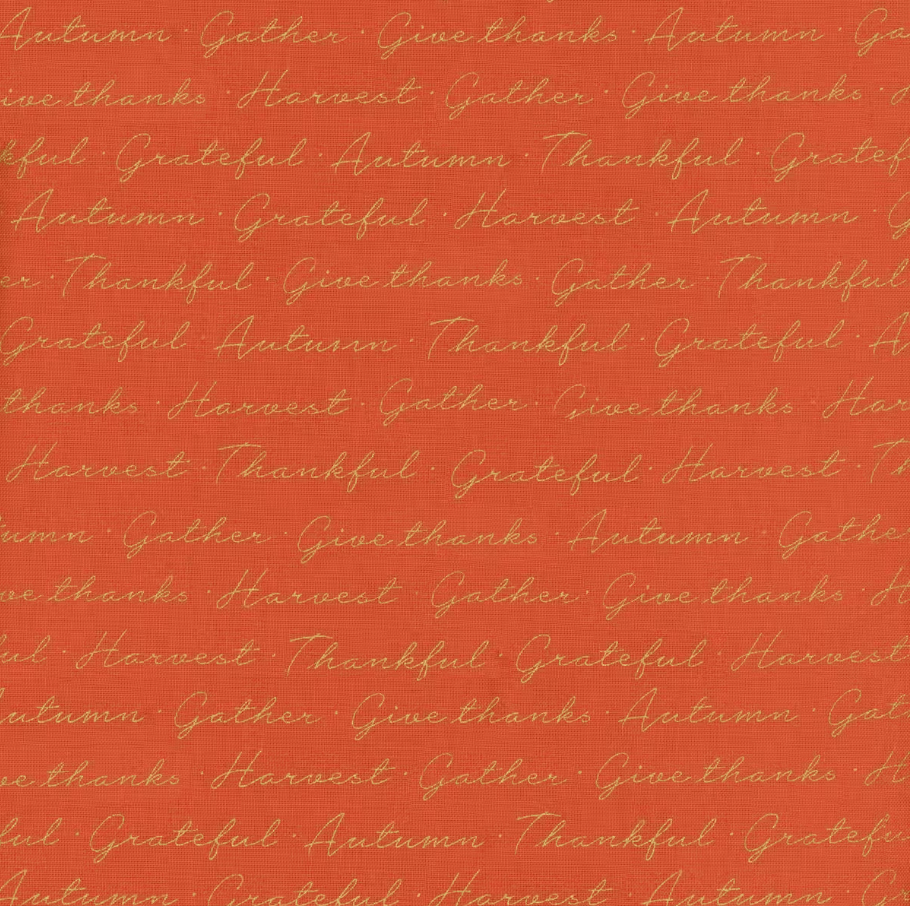 Autumn · Gather · Give thanks · Autumn · Ga
ive thanks · Harvest · Gather · Give thanks ·
kful · Grateful · Autumn · Thankful · Gratef
Autumn · Grateful · Harvest · Autumn · G
er · Thankful · Give thanks · Gather · Thankful
Grateful · Autumn · Thankful · Grateful · A
thanks · Harvest · Gather · Give thanks · Har
Harvest · Thankful · Grateful · Harvest · Th
umn · Gather · Give thanks · Autumn · Gathe
ve thanks · Harvest · Gather · Give thanks · H
ful · Harvest · Thankful · Grateful · Harvest
Autumn · Gather · Give thanks · Autumn · Gat
ve thanks · Harvest · Gather · Give thanks · H
ful · Grateful · Autumn · Thankful · Gratefu
Autumn · Grateful · Harvest · Autumn · Gr